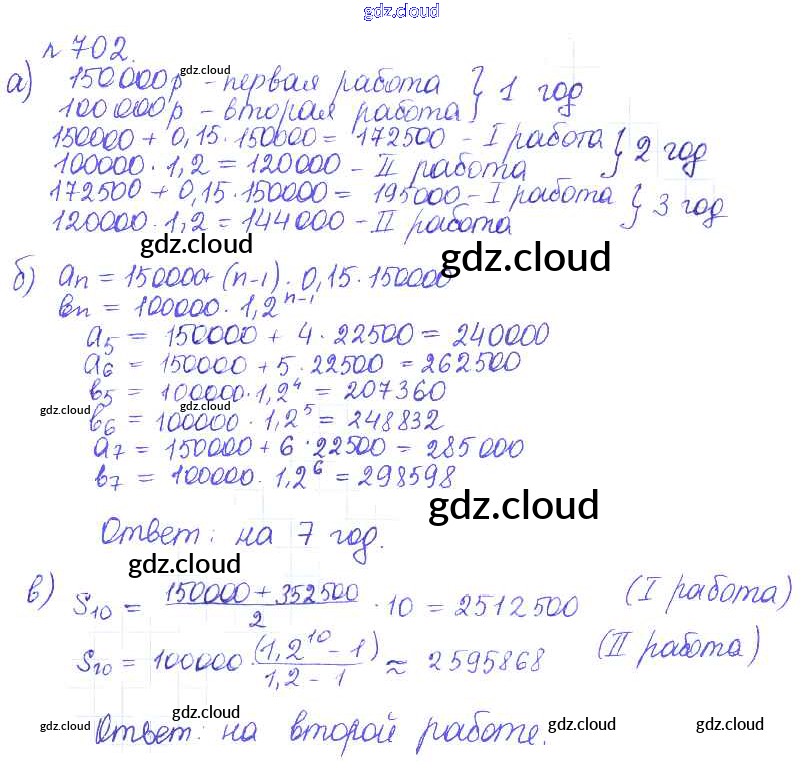 gdz.cloud
№ 702.
а) 150000р - первая работа } 1 год
gdz.cloud
100000р - вторая работа
gdz.cloud gdz.cloud
150000 + 0,15·150000 = 172500 - I работа } 2 год
100000·1,2 = 120000 - II работа
172500 + 0,15·150000 = 195000 - I работа } 3 год
120000·1,2 = 144000 - II работа
gdz.cloud gdz.cloud
б) an = 150000+ (n-1)·0,15·150000
вn = 100000·1,2^n-1
a5 = 150000 + 4·22500 = 240000
a6 = 150000 + 5·22500 = 262500
в5 = 100000·1,2^4 = 207360
gdz.cloud gdz.cloud
в6 = 100000·1,2^5 = 248832
a7 = 150000 + 6·22500 = 285000
в7 = 100000·1,2^6 = 298598
gdz.cloud
Ответ: на 7 год.
gdz.cloud
в) S10 = (150000 + 352500)/2 · 10 = 2512500 (I работа)
S10 = 100000 (1,2^10 - 1)/(1,2 - 1) ≈ 2595868 (II работа)
gdz.cloud
Ответ: на второй работе.
gdz.cloud gdz.cloud gdz.cloud